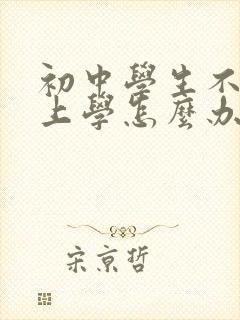 初中學生不
上學怎麼办
宋京哲